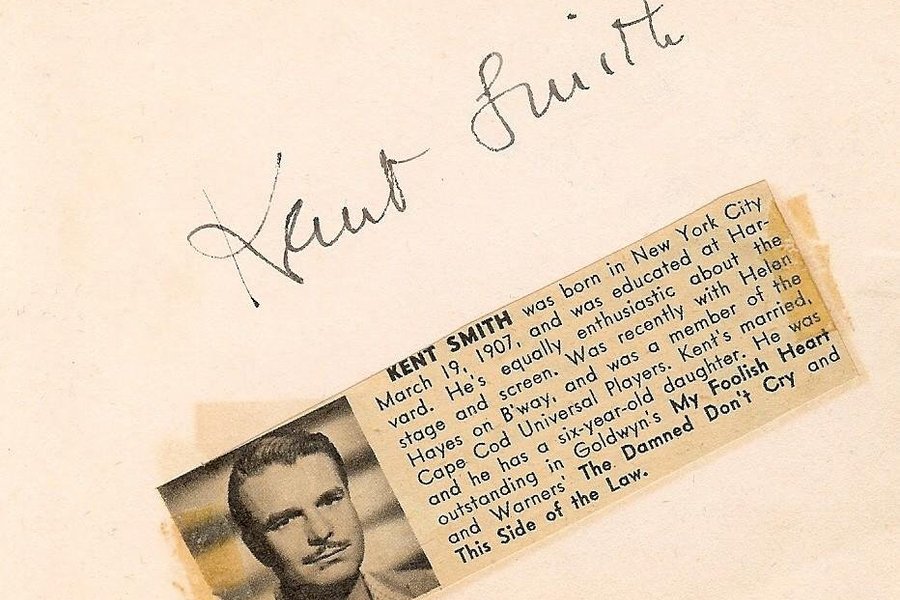 Kent Smith
KENT SMITH was born in New York City
March 19, 1907, and was educated at Har-
vard. He's equally enthusiastic about the
stage and screen. Was recently with Helen
Hayes on B'way, and was a member of the
Cape Cod Universal Players. Kent's married,
and he has a six-year-old daughter. He was
outstanding in Goldwyn's My Foolish Heart
and Warners' The Damned Don't Cry and
This Side of the Law.